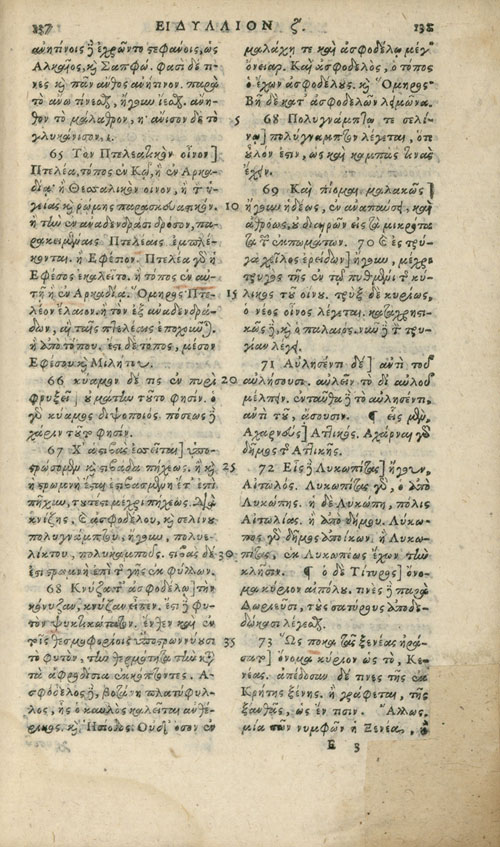 137 ΕΙΔΥΛΛΙΟΝ ζ. 138
ἀνητίνοις ἢ ἐχρῶντο στεφάνοις, ὡς
Ἀλκαῖος, κὶ Σαπφώ. φασὶ δέ τι-
νες κὶ πᾶν ἄνθος ἀνήτινον. παρὰ
τὸ ἄνω ἤγουν ἄνη-
θον τὸ μάλαθρον, ἢ ἄνισον δὲ τὸ
γλυκάνισον.
65 Τὸν Πτελεατικὸν οἶνον]
Πτελέα, τόπος ἐν Κῷ, ἢ ἐν Ἀρκα-
δίᾳ· ἢ Θεσσαλικὸν οἶνον, ἢ τ ὑ-
γείας κὶ ῥώμης παρασκευαστικόν.
ἢ τὸν ἐν ἀναδενδράσι δρόσον, πα-
ρακειμέναις Πτελέαις ἐμπλέ-
κονται. ἢ Ἐφέσιον. Πτελέα γὸ ἡ
Ἔφεσος ἐκαλεῖτο. ἢ τόπος ἐν αὐ-
τῇ ἢ ἐν Ἀρκαδίᾳ. Ὅμηρος Πτε-
λέον ἕλαιον. ἢ τὸν ἐξ ἀναδενδρά-
δων, αἳ ταῖς πτελέαις
ἢ ἀπὸ τόπου. ἔστι δὲ τόπος, μέσον
Ἐφέσου κὶ Μιλήτου.
66 κύαμον δέ τις ἐν πυρὶ
φρυξεῖ] οὐ μάτην τοῦτο φησίν. ὁ
γὸ κύαμος διψοποιός. πόσεως ἢ
χάριν τοῦτο φησίν.
67 Χ᾿ ἁ στιβὰς ἐσσεῖται] ὑπο-
στρωσομένη κὶ στιβάδα πήχεως. ἢ κὶ
ἡ στρωμνὴ ἔσται ἐστιβασμένη ἔστ᾿ ἐπὶ
πήχυν, τουτέστι μέχρι πήχεως. διὰ
κνίζης, καὶ ἀσφοδέλου, κὶ σελίνου
πολυγνάμπτου, ἤγουν, πολυε-
λίκτου, πολυκαμποῦς. στιβὰς δέ
ἐστι στρωμνὴ ἐπὶ τ γῆς ἐκ φύλλων.
68 Κνύζᾳ τ᾿ ἀσφοδέλῳ] τὴν
κόνυζαν, κνύζαν εἶπεν. ἔστι ἢ φυ-
τὸν ψυκτικώτατον. ἔνθεν καὶ ἐν
τοῖς θεσμοφορίοις ὑποστρωννύουσι
τὸ φυτὸν, τὴν θερμότητα τὴν κὶ
τὰ ἀφροδίσια ἐκκόπτοντες. Ἀ-
σφόδελος ἢ, βοτάνη πλατύφυλ-
λος, ἧς ὁ καυλὸς καλεῖται ἀνθέ-
ρικος. κὶ Ἡσίοδος· Οὐδ᾿ ὅσον ἐν
μαλάχῃ τε καὶ ἀσφοδέλῳ μέγ᾿
ὄνειαρ. Καὶ ἀσφοδελὸς, ὁ τόπος
ὁ ἔχων ἀσφοδέλους. κὶ Ὅμηρος·
Βῆ δὲ κατ᾿ ἀσφοδελὸν λειμῶνα.
68 Πολυγνάμπτῳ τε σελί-
νῳ] πολύγναμπτον λέγεται, ὅτι
οὖλόν ἐστιν, ὡς καὶ καμπὰς τινὰς
ἔχειν.
69 Καὶ πίομαι μαλακῶς]
ἤγουν ἡδέως, ἐν ἀναπαύσει, καὶ
ἀθρόως, οὐ διαιρῶν εἰς τὰ μικρότα-
τα τ ἐκπωμάτων. 70 Καὶ ἐς τρύ-
γα χεῖλος ἐρείδων] ἤγουν, μέχρι
τρυγὸς τῆς ἐν τῷ πυθμένι τ κύ-
λικος τοῦ οἴνου. τρὺξ δὲ κυρίως,
ὁ νέος οἶνος λέγεται. καταχρηστι-
κῶς ἢ, κὶ ὁ παλαιός. νῦν ἢ τ τρυ-
γίαν λέγει.
71 Αὐλησεῦντι δέ] ἀντὶ τοῦ
αὐλήσουσι. αὐλεῖν τὸ δι᾿ αὐλοῦ
μέλπειν. ἐνταῦθα ἢ τὸ αὐλησεῦντι,
ἀντὶ τοῦ, ᾄσουσιν. ¶ εἷς μὲν,
Ἀχαρνεύς] Ἀττικός. Ἀχάρναι γὸ
δῆμος τ Ἀττικῆς.
72 Εἷς ἢ Λυκωπίτας] ἤγουν,
Αἰτωλός. Λυκωπίτας γὸ, ὁ ἀπὸ
Λυκώπης. ἡ δὲ Λυκώπη, πόλις
Αἰτωλίας. ἢ ἀπὸ δήμου. Λύκω-
πος γὸ δῆμος ἀποίκων. ἢ Λυκω-
πίτας, ἐκ Λυκωπέως ἔχων τὴν
κλῆσιν. ¶ ὁ δὲ Τίτυρος] ὄνο-
μα κύριον αἰπόλου. τινὲς ἢ παρὰ
Δωριεῦσι, τοὺς σατύρους ἀποδε-
δώκασι λέγεσθαι.
73 Ὥς ποκα τᾶς ξενέας ἠρά-
σατο] ὄνομα κύριον ὡς τὸ, Κε-
νέας. ἀπέδοσαν δέ τινες τῆς ἐκ
Κρήτης ξένης. ἢ γράφεται, τῆς
ξανθᾶς, ὡς ἔν τισιν. Ἄλλως.
μία τῶν νυμφῶν ἡ Ξενέα, οὐ
5
10
15
20
25
30
35
E 3